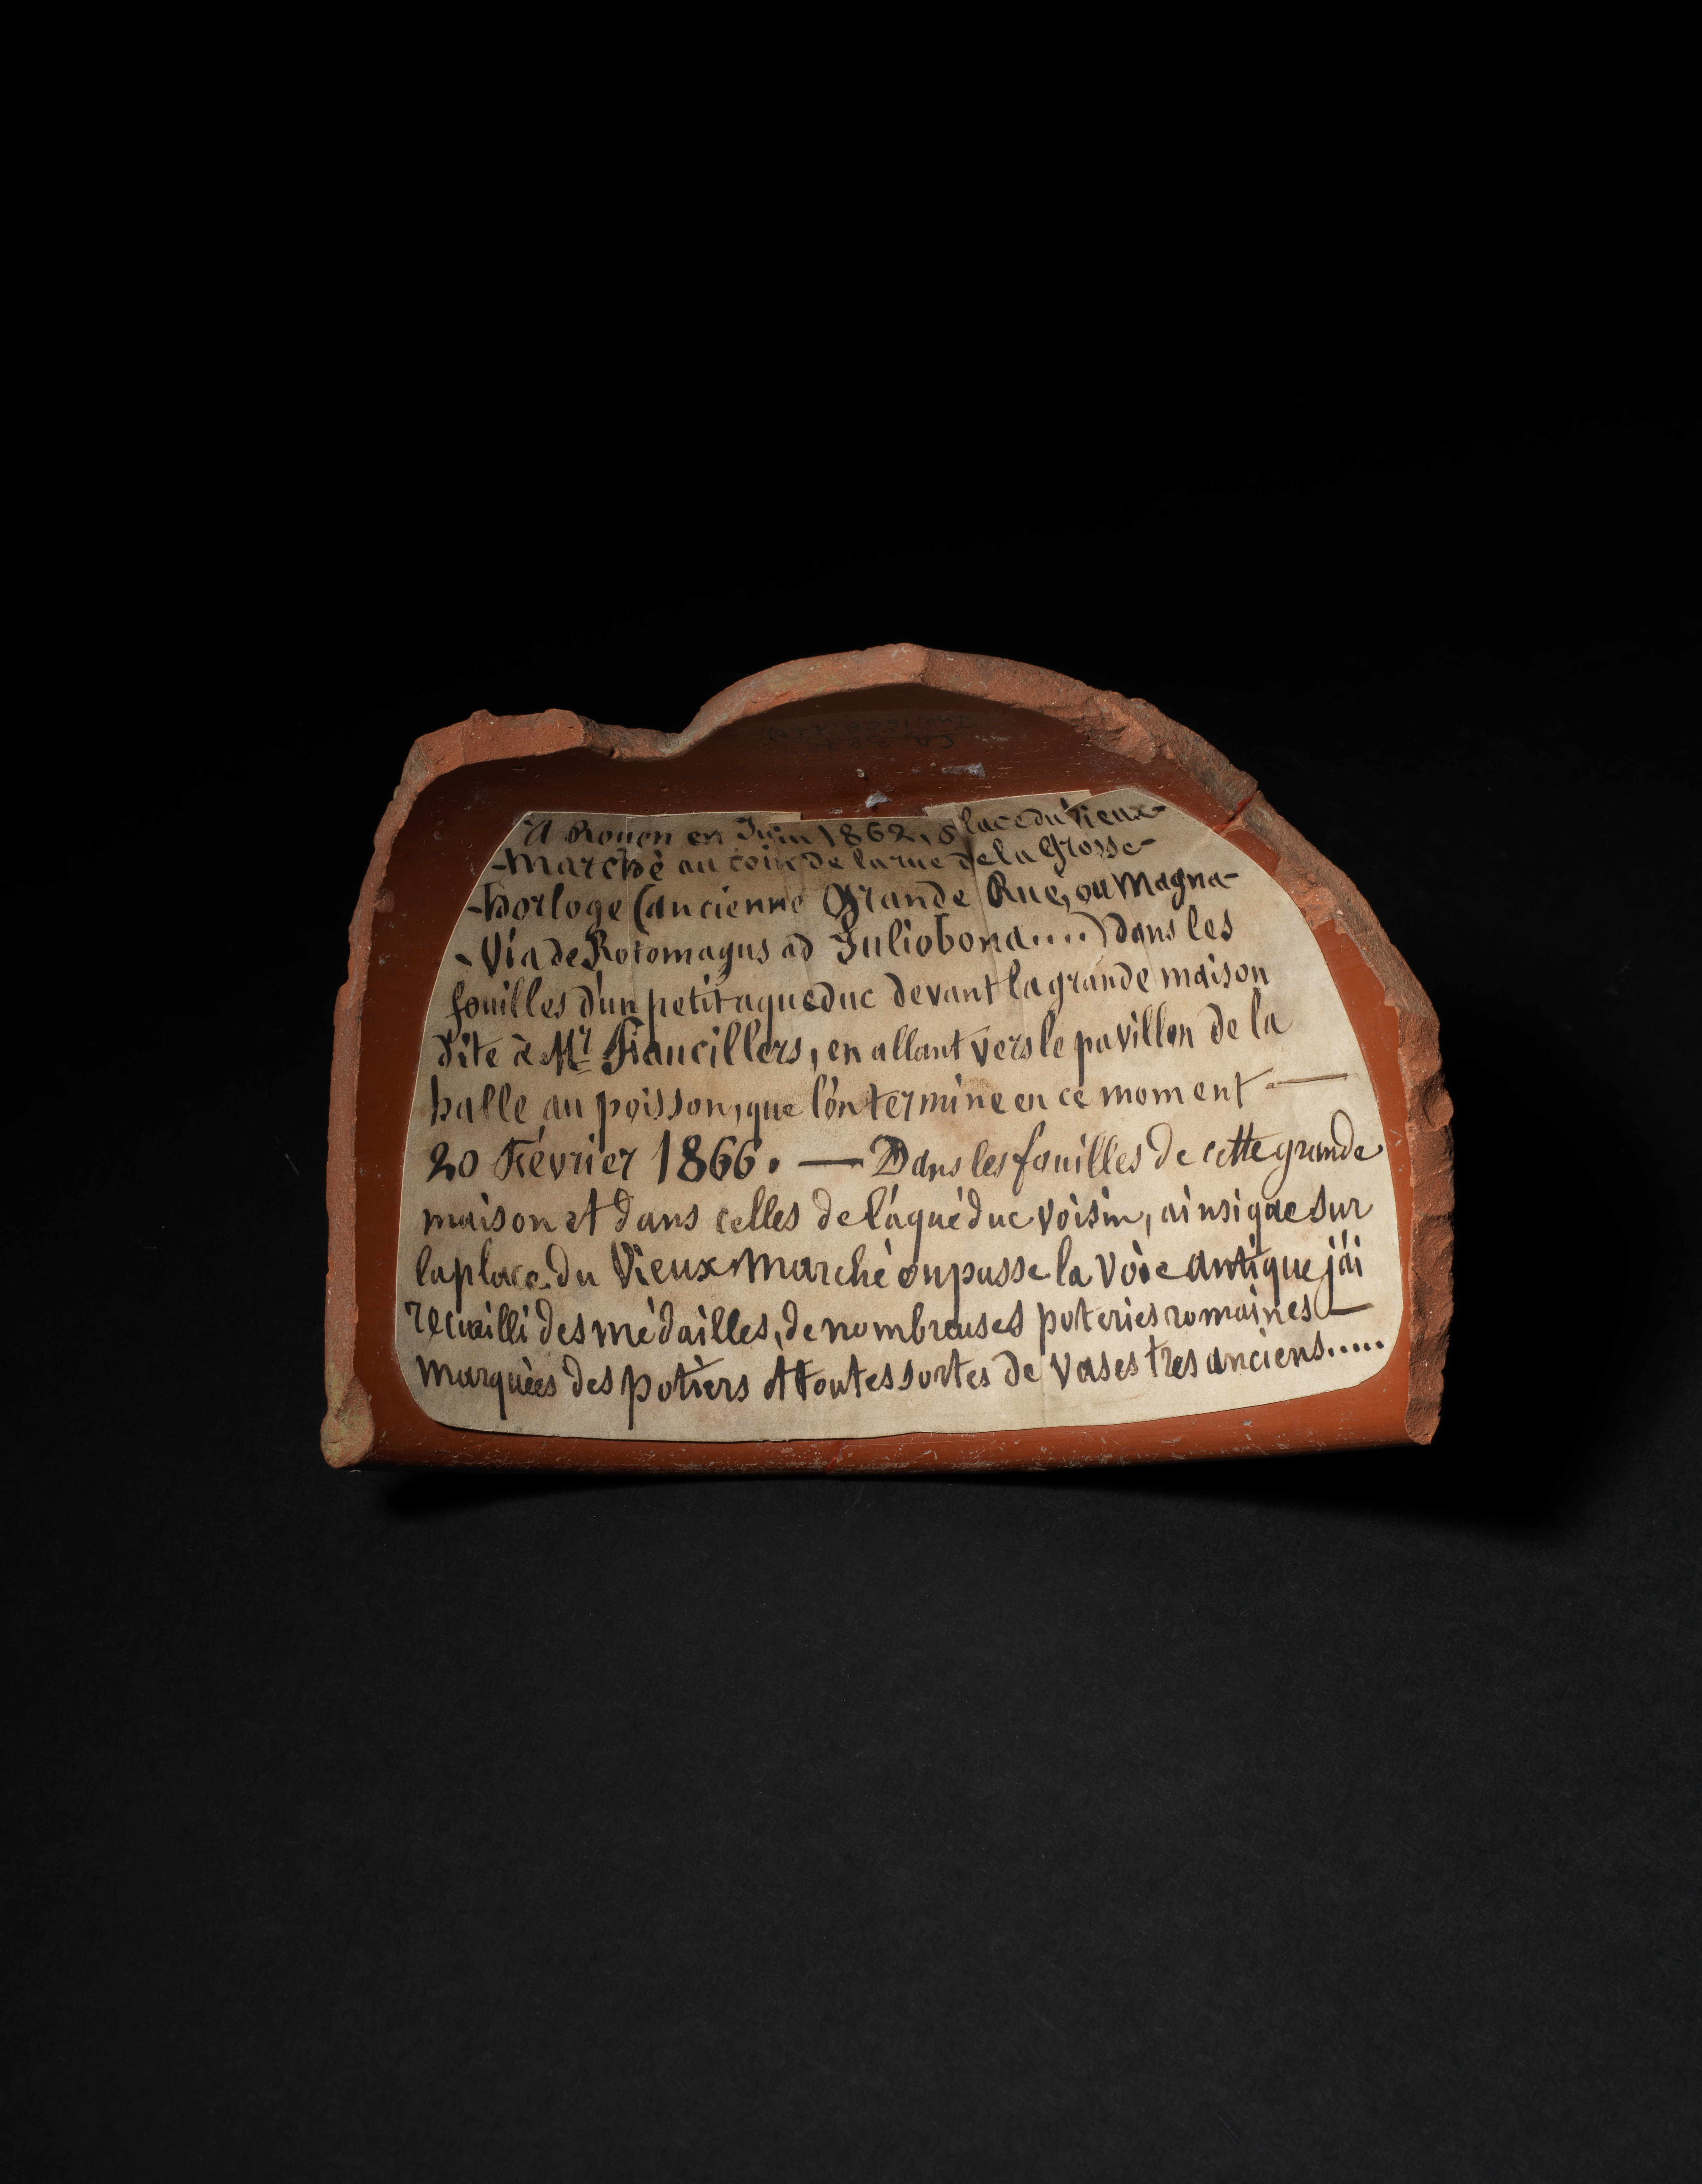 A Rouen en Juin 1862, place du Vieux-
-Marché au coin de la rue de la Grosse-
-horloge (ancienne Grande Rue, ou Magna-
-Via de Rotomagus ad Juliobona....) dans les
fouilles d'un petit aqueduc devant la grande maison
dite à Mr, en allant vers le pavillon de la
halle au poisson, que l'on termine en ce moment —
20 Février 1866. — Dans les fouilles de cette grande
maison et dans celles de l'aquéduc voisin, ainsi que sur
la place du Vieux Marché ou passe la voie antique j'ai
recueilli des médailles, de nombreuses poteries romaines —
marquées des potiers et toutes sortes de vases tres anciens.....